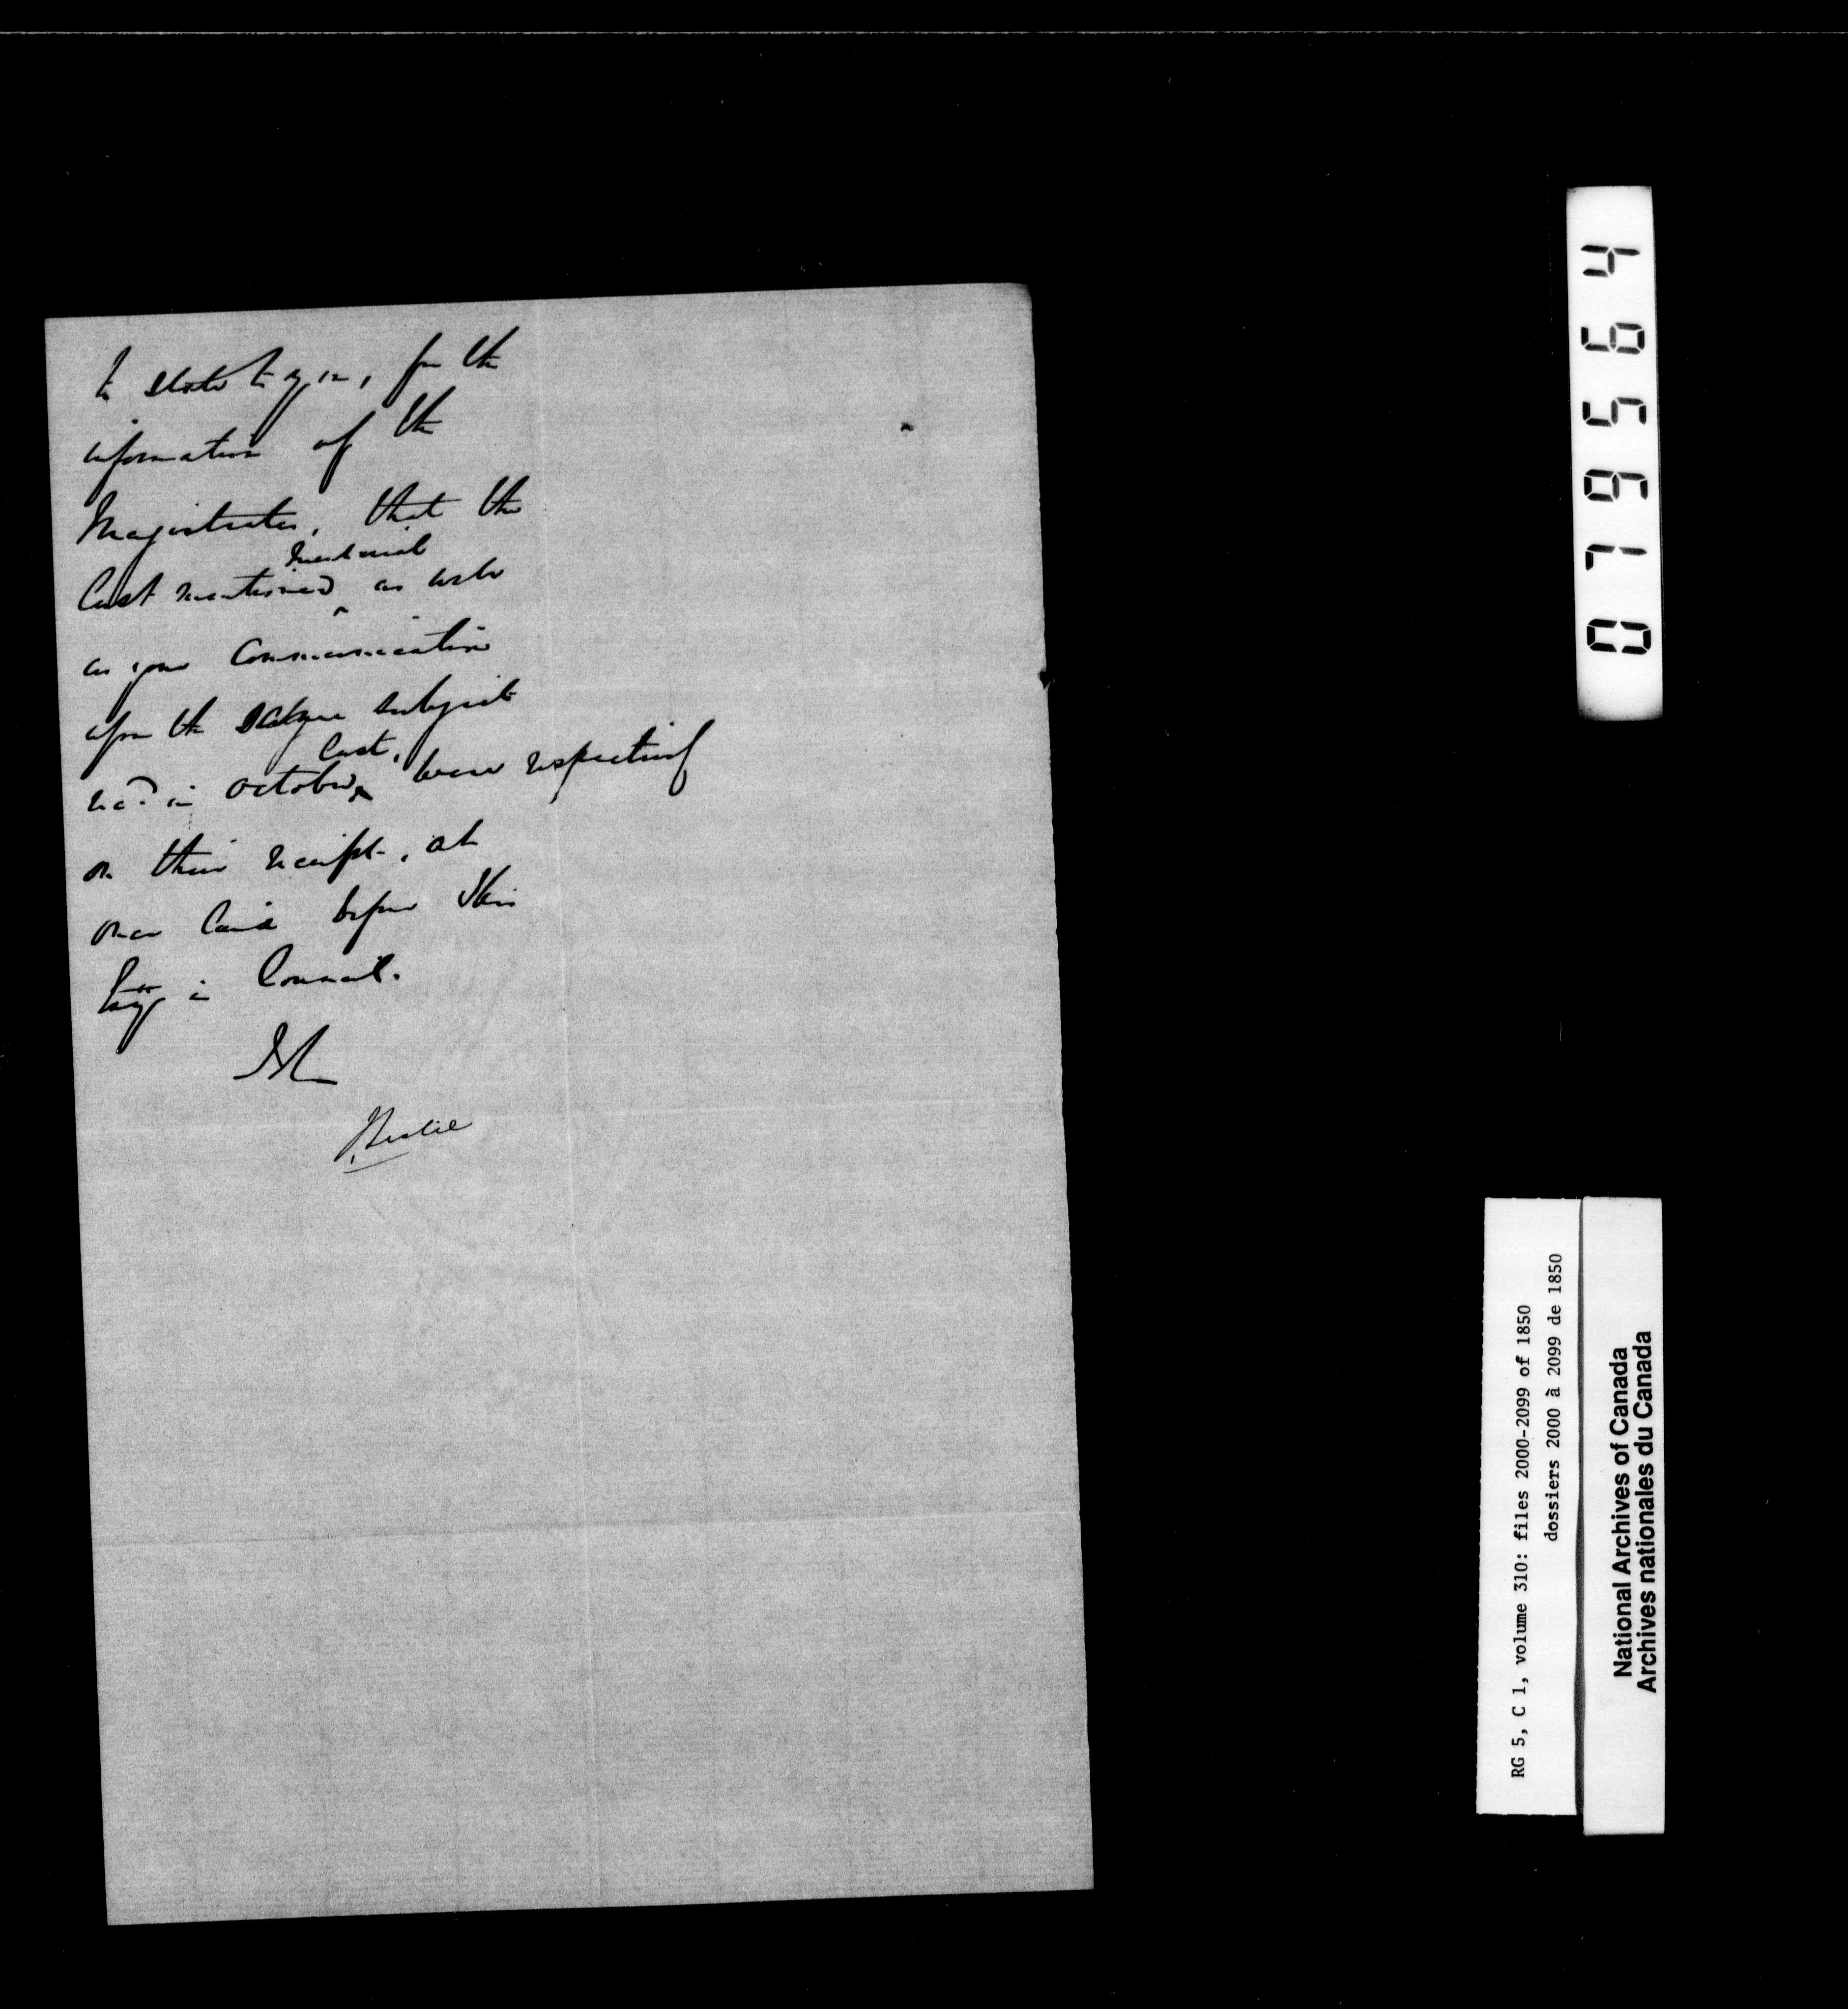 to state to you, for the
information of the
Magistrates, that the
Memorial
last mentioned ^ as well
as your Communication
upon the same subject
last,
recd. in October ^ were respectively
on their receipt, at
once laid before His
Excy in Council.
J Leslie
079564
RG 5, C 1, volume 310: files 2000-2099 of 1850
dossiers 2000 à 2099 de 1850
National Archives of Canada
Archives nationales du Canada